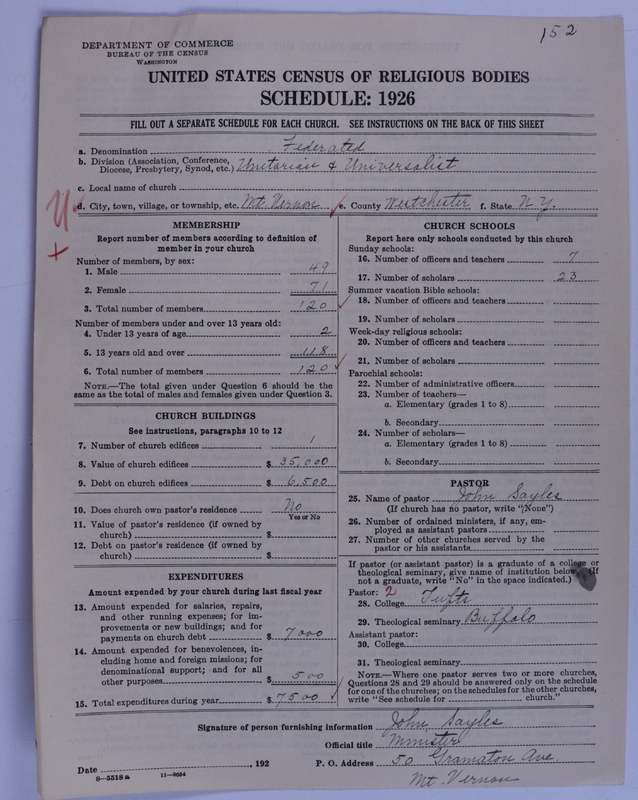 152
DEPARTMENT OF COMMERCE
BUREAU OF THE CENSUS
WASHINGTON
UNITED STATES CENSUS OF RELIGIOUS BODIES
SCHEDULE: 1926
FILL OUT A SEPARATE SCHEDULE FOR EACH CHURCH. SEE INSTRUCTIONS ON THE BACK OF THIS SHEET
a. Denomination Federated
b. Division (Association, Conference, Diocese, Presbytery, Synod, etc.) Unitarian & Universalist
c. Local name of church
d. City, town, village, or township, etc. Mt. Vernon e. County Westchester f. State N.Y.
U
+
MEMBERSHIP
Report number of members according to definition of
member in your church
Number of members, by sex:
1. Male 49
2. Female 71
3. Total number of members 120
Number of members under and over 13 years old:
4. Under 13 years of age 2
5. 13 years old and over 118
6. Total number of members 120
NOTE.—The total given under Question 6 should be the
same as the total of males and females given under Question 3.
CHURCH BUILDINGS
See instructions, paragraphs 10 to 12
7. Number of church edifices 1
8. Value of church edifices $ 35,000
9. Debt on church edifices $ 6,500
10. Does church own pastor's residence No
Yes or No
11. Value of pastor's residence (if owned by
church) $
12. Debt on pastor's residence (if owned by
church) $
EXPENDITURES
Amount expended by your church during last fiscal year
13. Amount expended for salaries, repairs,
and other running expenses; for im-
provements or new buildings; and for
payments on church debt $ 7000
14. Amount expended for benevolences, in-
cluding home and foreign missions; for
denominational support; and for all
other purposes $ 500
15. Total expenditures during year $ 7500
CHURCH SCHOOLS
Report here only schools conducted by this church
Sunday schools:
16. Number of officers and teachers 7
17. Number of scholars 23
Summer vacation Bible schools:
18. Number of officers and teachers
19. Number of scholars
Week-day religious schools:
20. Number of officers and teachers
21. Number of scholars
Parochial schools:
22. Number of administrative officers
23. Number of teachers—
a. Elementary (grades 1 to 8)
b. Secondary
24. Number of scholars—
a. Elementary (grades 1 to 8)
b. Secondary
PASTOR
25. Name of pastor John Sayles
(If church has no pastor, write "None")
26. Number of ordained ministers, if any, em-
ployed as assistant pastors
27. Number of other churches served by the
pastor or his assistants
If pastor (or assistant pastor) is a graduate of a college or
theological seminary, give name of institution below. (If
not a graduate, write "No" in the space indicated.)
Pastor: 2
28. College Tufts
29. Theological seminary Buffalo
Assistant pastor:
30. College
31. Theological seminary
NOTE.—Where one pastor serves two or more churches,
Questions 28 and 29 should be answered only on the schedule
for one of the churches; on the schedules for the other churches,
write "See schedule for church."
Signature of person furnishing information John Sayles
Official title Minister
Date , 192 P. O. Address 50 Gramaton Ave
8—5518a 11—9604 Mt. Vernon